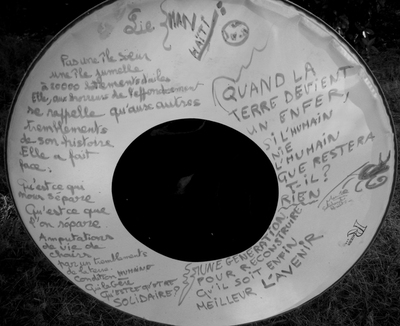 Lie
MAN
HAÏTI
Pas une île soeur
une île jumelle
à 10000
Elle, aux
se rappelle qu'aux autres
tremblements
de son histoire
Elle a fait
face.
Qu'est ce qui
nous sépare
Qu'est ce que
l'on sépare
Amputations
de vie de
choisir
par un tremblement
de
Condition HUMAINE
SOLIDAIRE?
QUAND LA
TERRE DEVIENT
UN ENFER,
SI L'HUMAIN
NIE
L'HUMAIN
QUE RESTERA
T-IL?
RIEN
UNE GENERATION
POUR RECONSTRUIRE
QU'IL SOIT ENFIN
MEILLEUR L'AVENIR